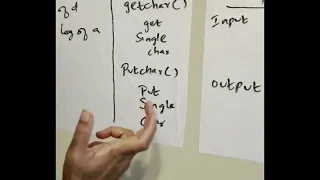 of d
log of a
getchar()
get
Single
char
Putchar()
Put
Single
Char
Input
Output